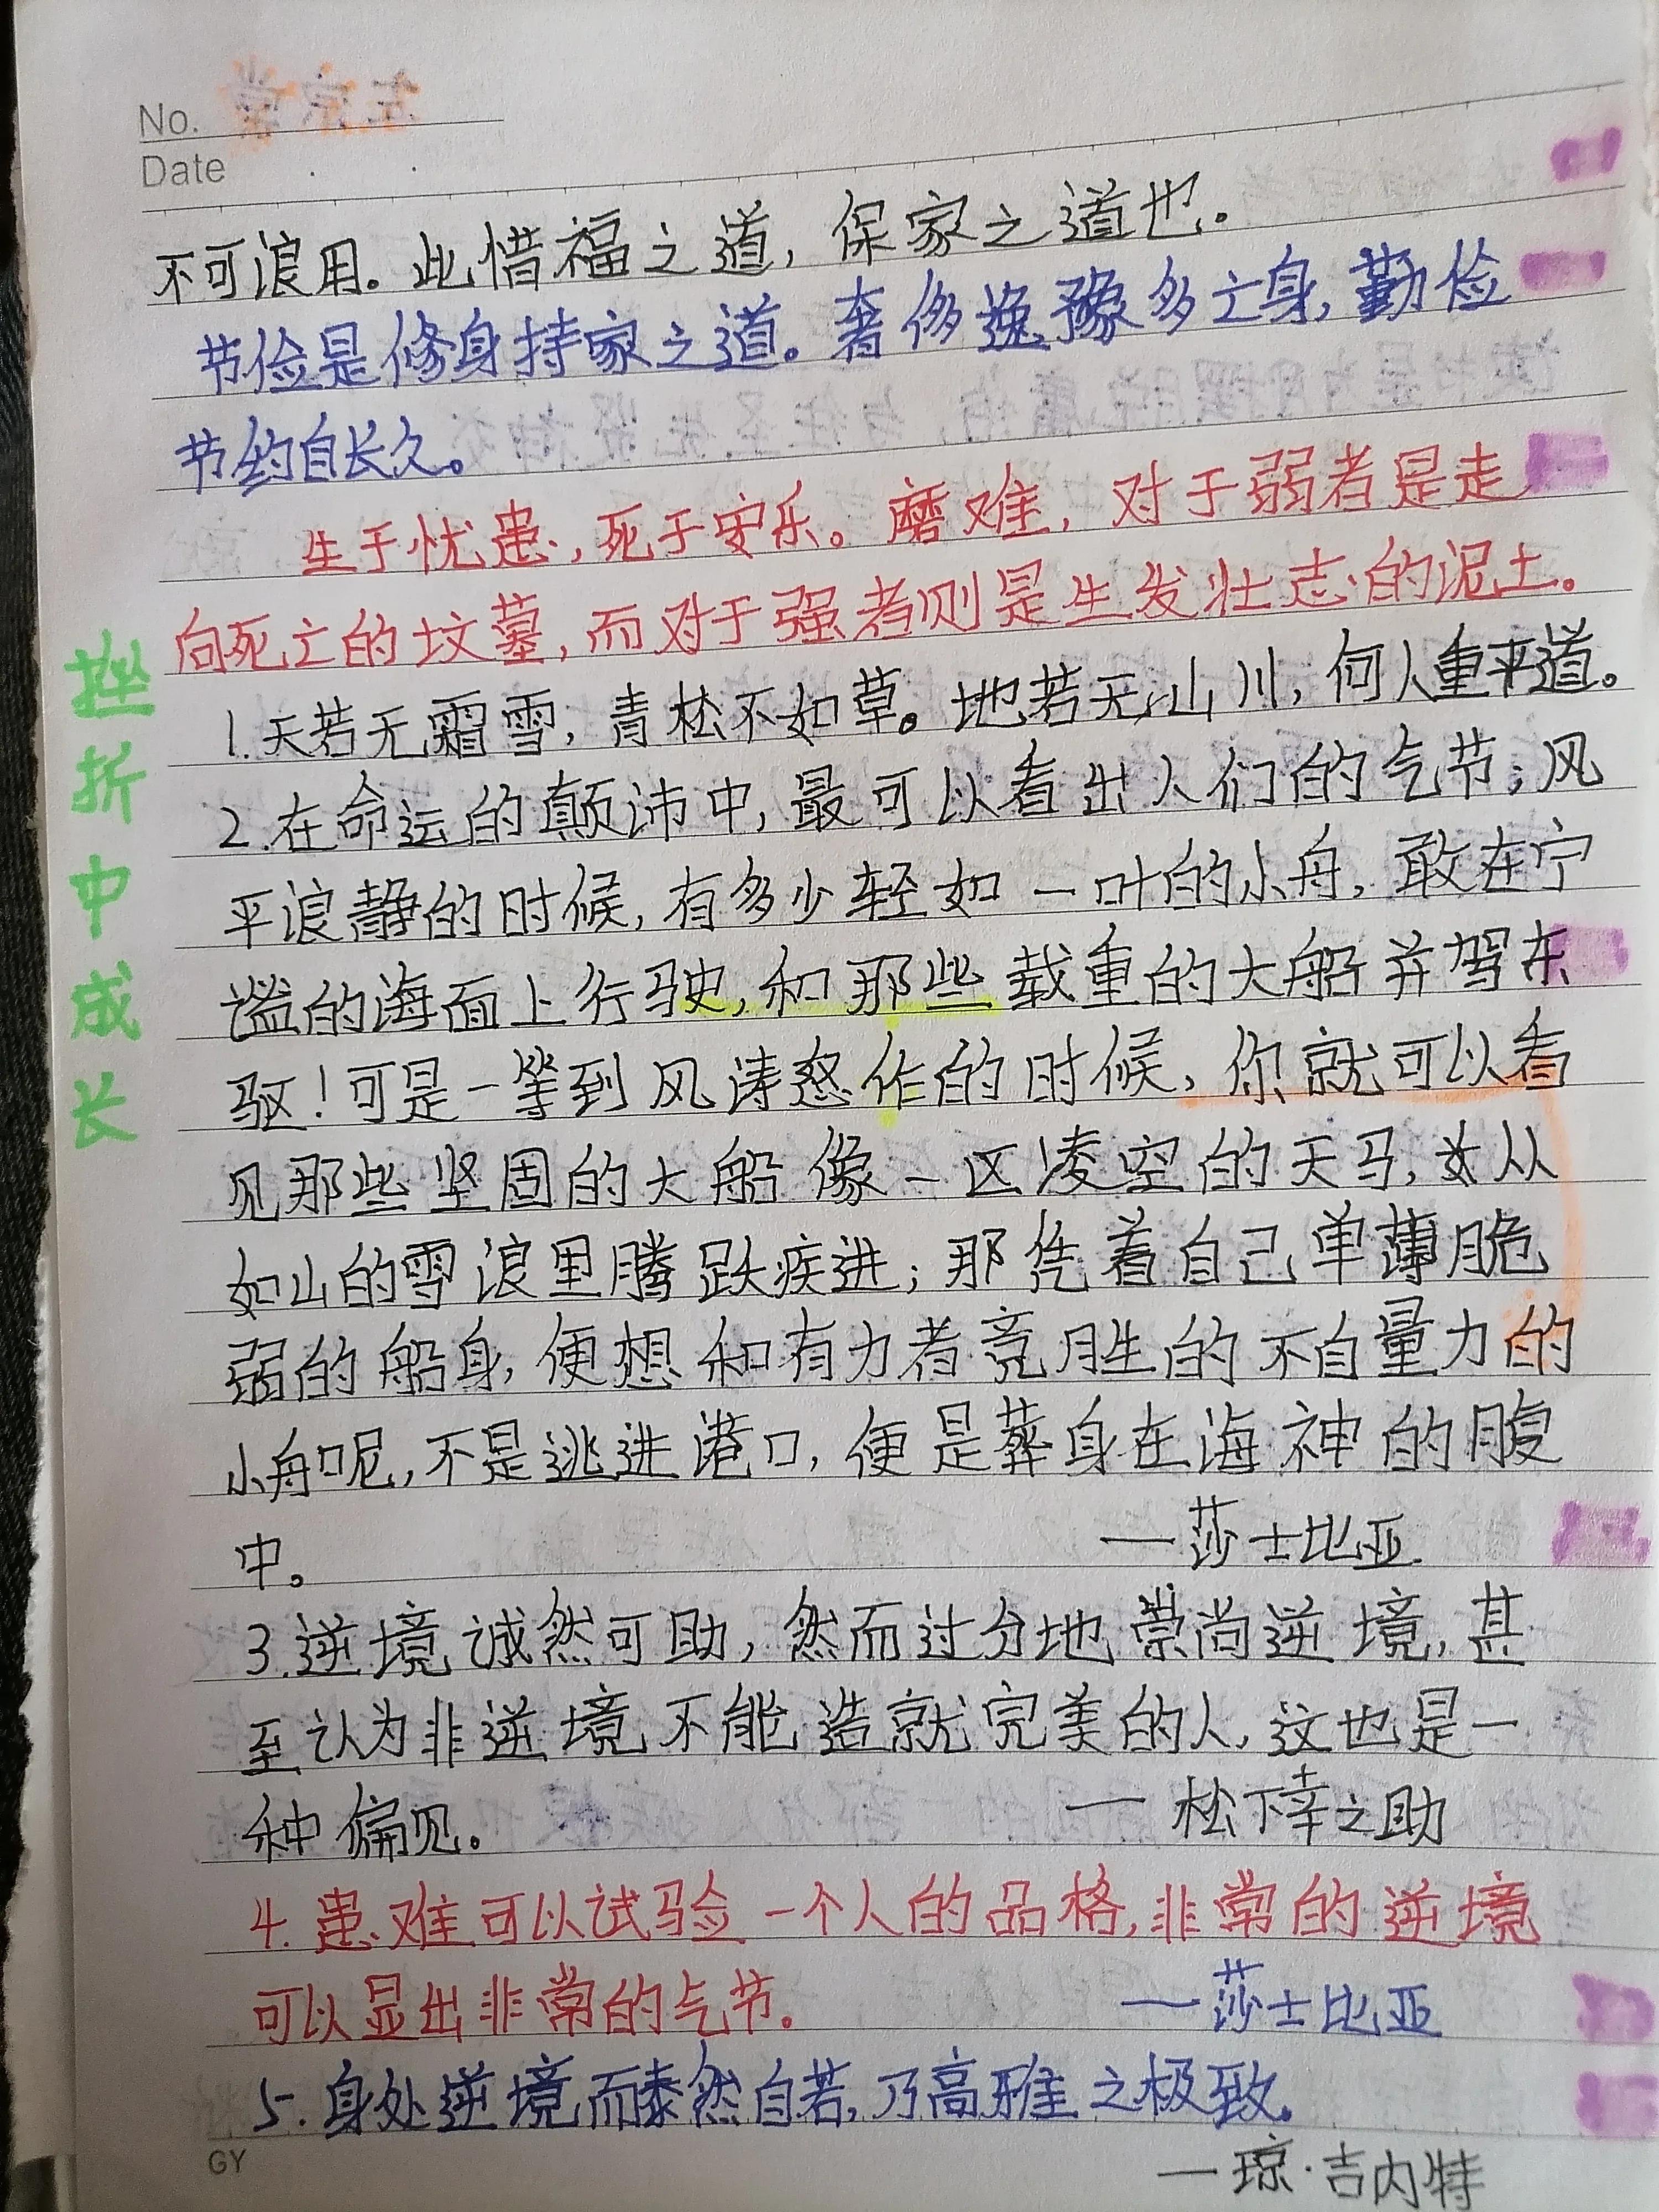 No.
Date
不可浪用。此惜福之道，保家之道也。
节俭是修身持家之道。奢侈逸豫多亡身，勤俭
节约自长久。
生于忧患，死于安乐。磨难，对于弱者是走
向死亡的坟墓，而对于强者则是生发壮志的泥土。
挫折中成长
1.天若无霜雪，青松不如草。地若无山川，何人重平道。
2.在命运的颠沛中，最可以看出人们的气节；风
平浪静的时候，有多少轻如一叶的小舟，敢在宁
谧的海面上行驶，和那些载重的大船并驾东
驱！可是一等到风涛怒作的时候，你就可以看
见那些坚固的大船像一区凌空的天马，从
如山的雪浪里腾跃疾进；那凭着自己单薄脆
弱的船身，便想和有力者竞胜的不自量力的
小舟呢，不是逃进港口，便是葬身在海神的腹
中。 —莎士比亚
3.逆境诚然可助，然而过分地崇尚逆境，甚
至认为非逆境不能造就完美的人，这也是一
种偏见。 —松下幸之助
4.患难可以试验一个人的品格，非常的逆境
可以显出非常的气节。 —莎士比亚
5.身处逆境而泰然自若，乃高雅之极致。
GY
—琼·吉内特